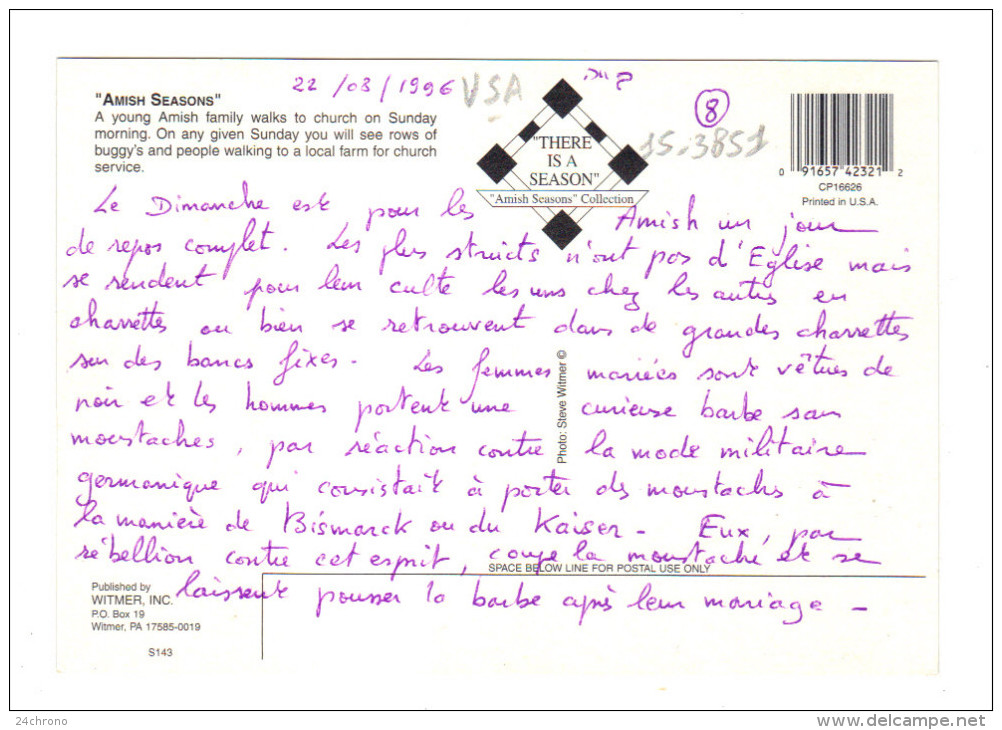 22 /03/1996 USA
8
15.3851
"AMISH SEASONS"
A young Amish family walks to church on Sunday
morning. On any given Sunday you will see rows of
buggy's and people walking to a local farm for church
service.
"THERE
IS A
SEASON"
"Amish Seasons" Collection
0 91657 42321 2
CP16626
Printed in U.S.A.
Le Dimanche est pour les Amish un jour
de repos complet. Les plus stricts n'ont pas d'Eglise mais
se rendent pour leur culte les uns chez les autres en
charrettes ou bien se retrouvent dans de grandes charrettes
sur des bancs fixes - Les femmes mariées sont vêtues de
noir et les hommes portent une curieuse barbe sans
moustaches, par réaction contre la mode militaire
germanique qui consistait à porter des moustaches à
la manière de Bismarck ou du Kaiser - Eux, par
rébellion contre cet esprit, coupe la moustache et se
laissent pousser la barbe après leur mariage -
Photo: Steve Witmer ©
SPACE BELOW LINE FOR POSTAL USE ONLY
Published by
WITMER, INC.
P.O. Box 19
Witmer, PA 17585-0019
S143
24chrono
www.delcampe.net